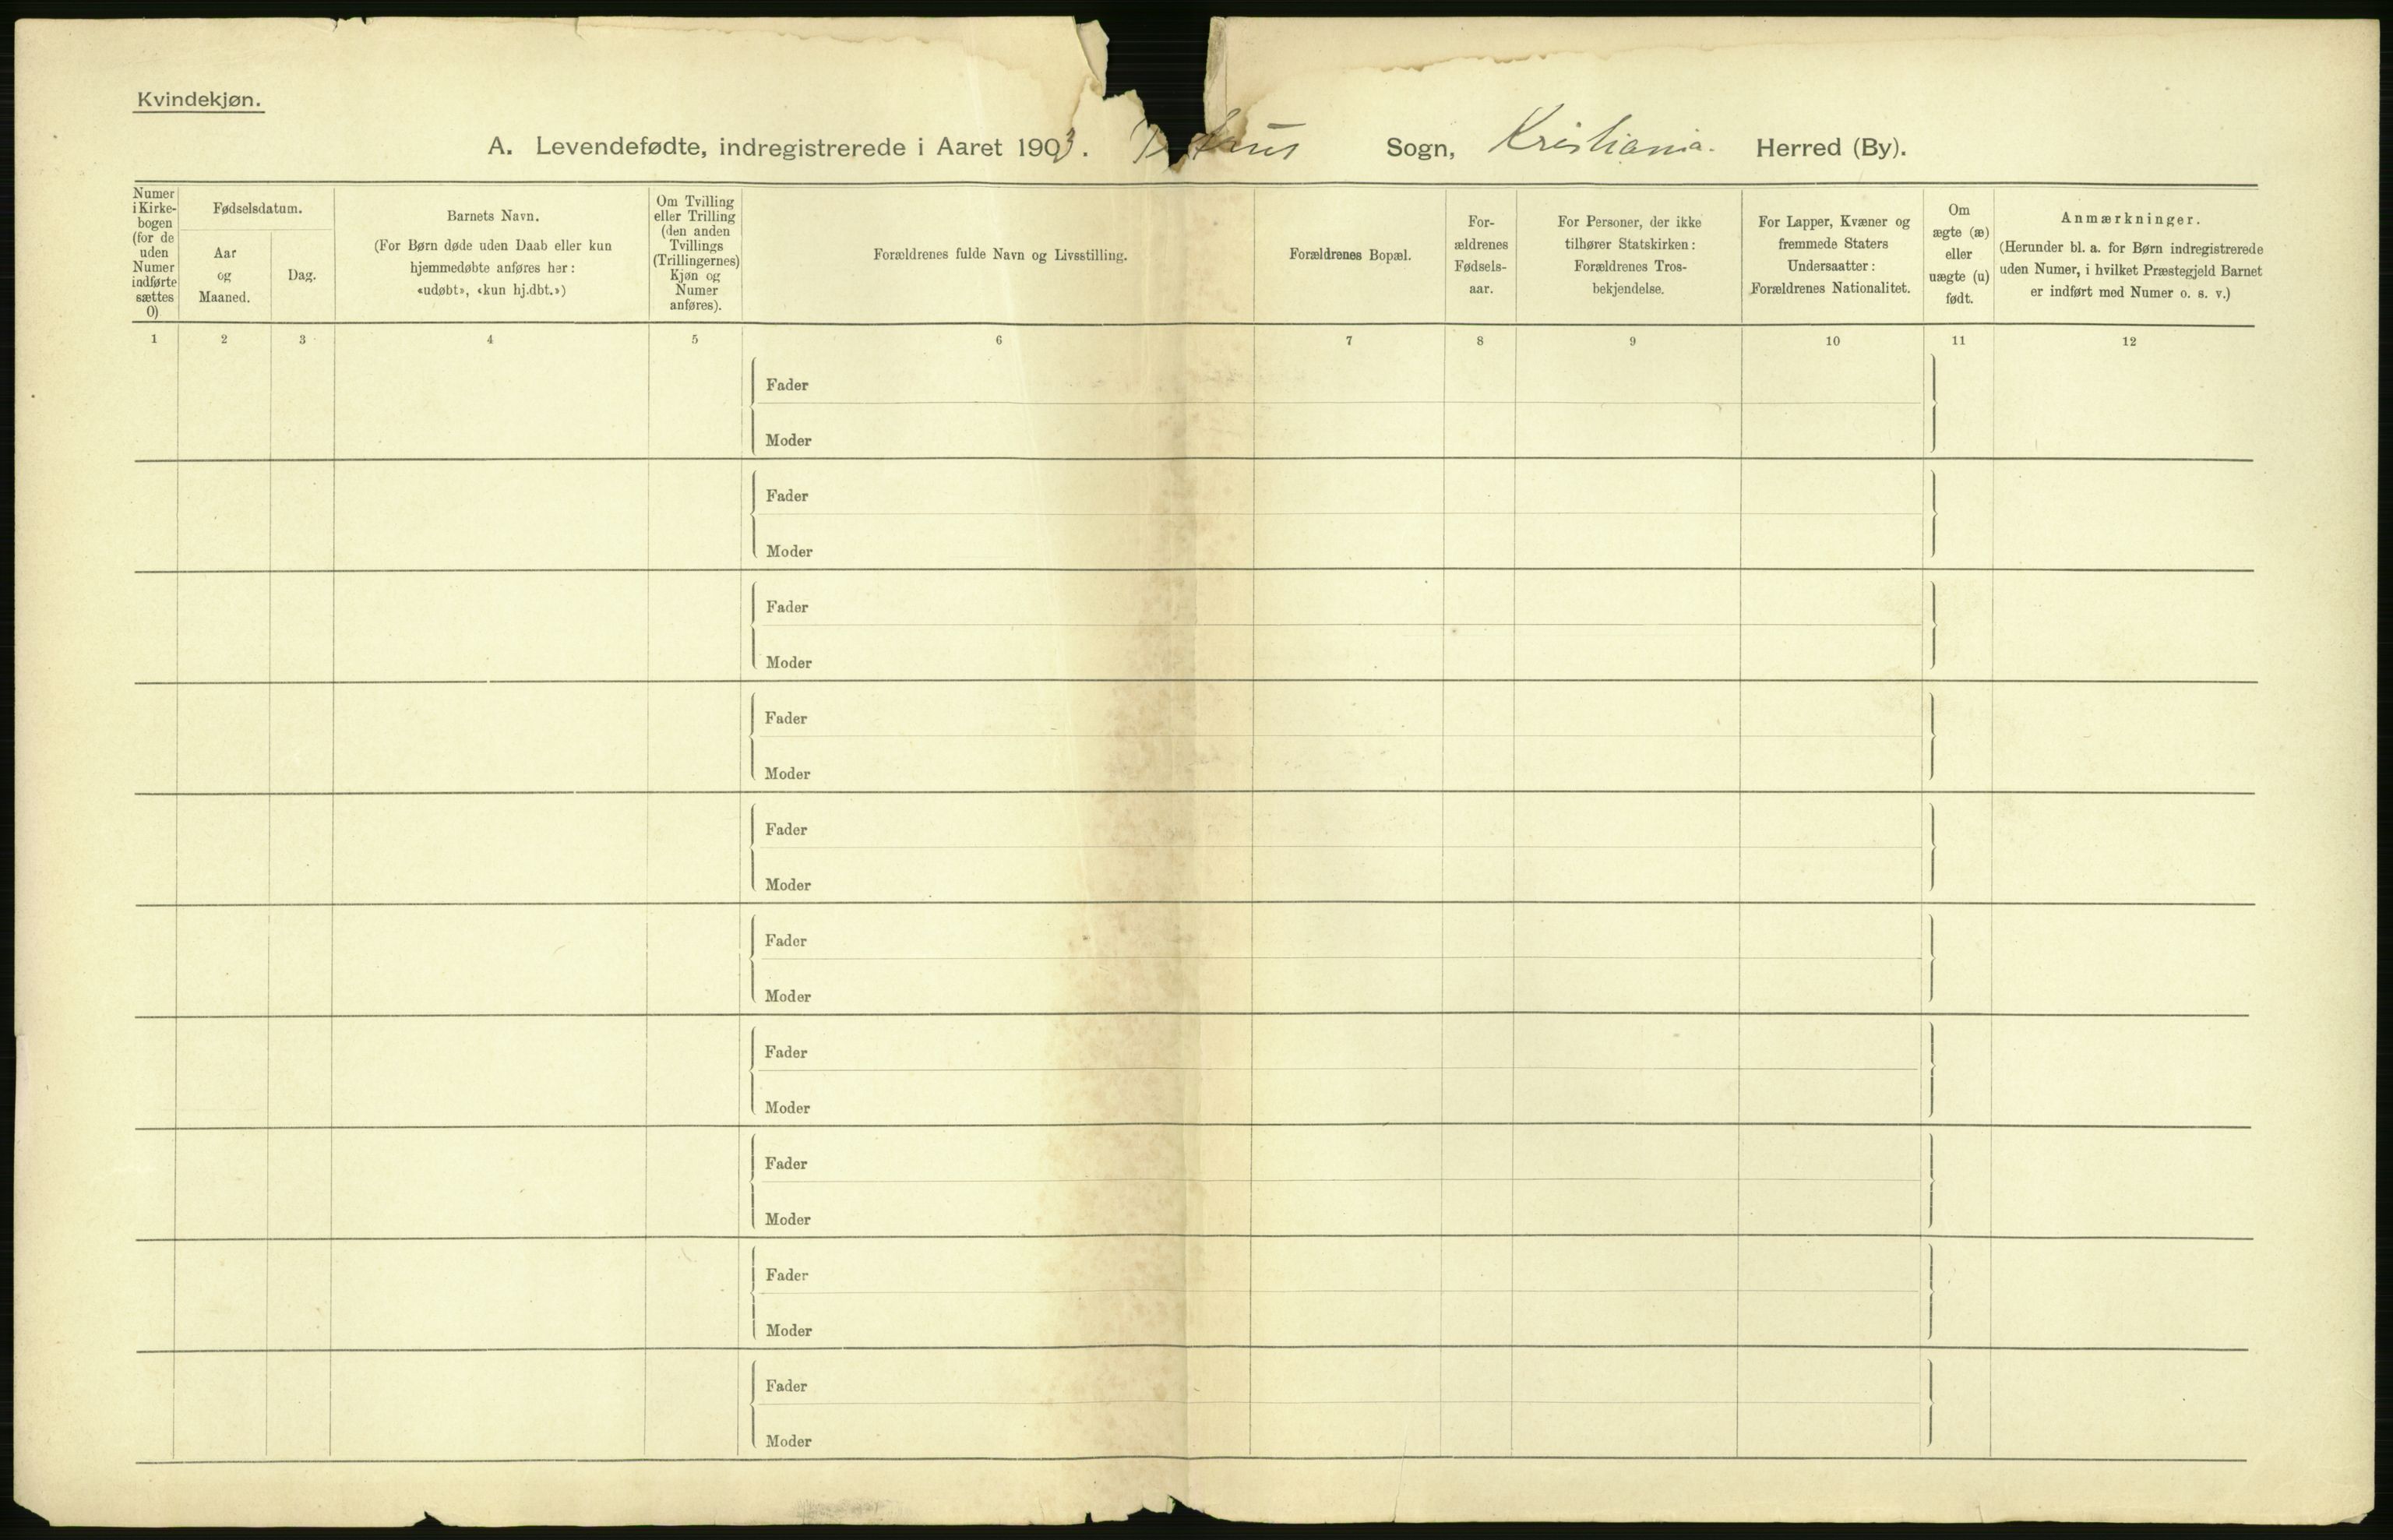 Kvindekjøn.
A. Levendefødte, indregistrerede i Aaret 1903. Sogn, Kristiania. Herred (By).
Numer
i Kirke-
bogen
(for de
uden
Numer
indførte
sættes
0)
Fødselsdatum.
Aar
og
Maaned.
Dag.
Barnets Navn.
(For Børn døde uden Daab eller kun
hjemmedøbte anføres her:
«udøbt», «kun hj.dbt.»)
Om Tvilling
eller Trilling
(den anden
Tvillings
(Trillingernes)
Kjøn og
Numer
anføres).
Forældrenes fulde Navn og Livsstilling.
Forældrenes Bopæl.
For-
ældrenes
Fødsels-
aar.
For Personer, der ikke
tilhører Statskirken:
Forældrenes Tros-
bekjendelse.
For Lapper, Kvæner og
fremmede Staters
Undersaatter:
Forældrenes Nationalitet.
Om
ægte (æ)
eller
uægte (u)
født.
Anmærkninger.
(Herunder bl. a. for Børn indregistrerede
uden Numer, i hvilket Præstegjeld Barnet
er indført med Numer o. s. v.)
1 2 3 4 5 6 7 8 9 10 11 12
Fader
Moder
Fader
Moder
Fader
Moder
Fader
Moder
Fader
Moder
Fader
Moder
Fader
Moder
Fader
Moder
Fader
Moder
Fader
Moder